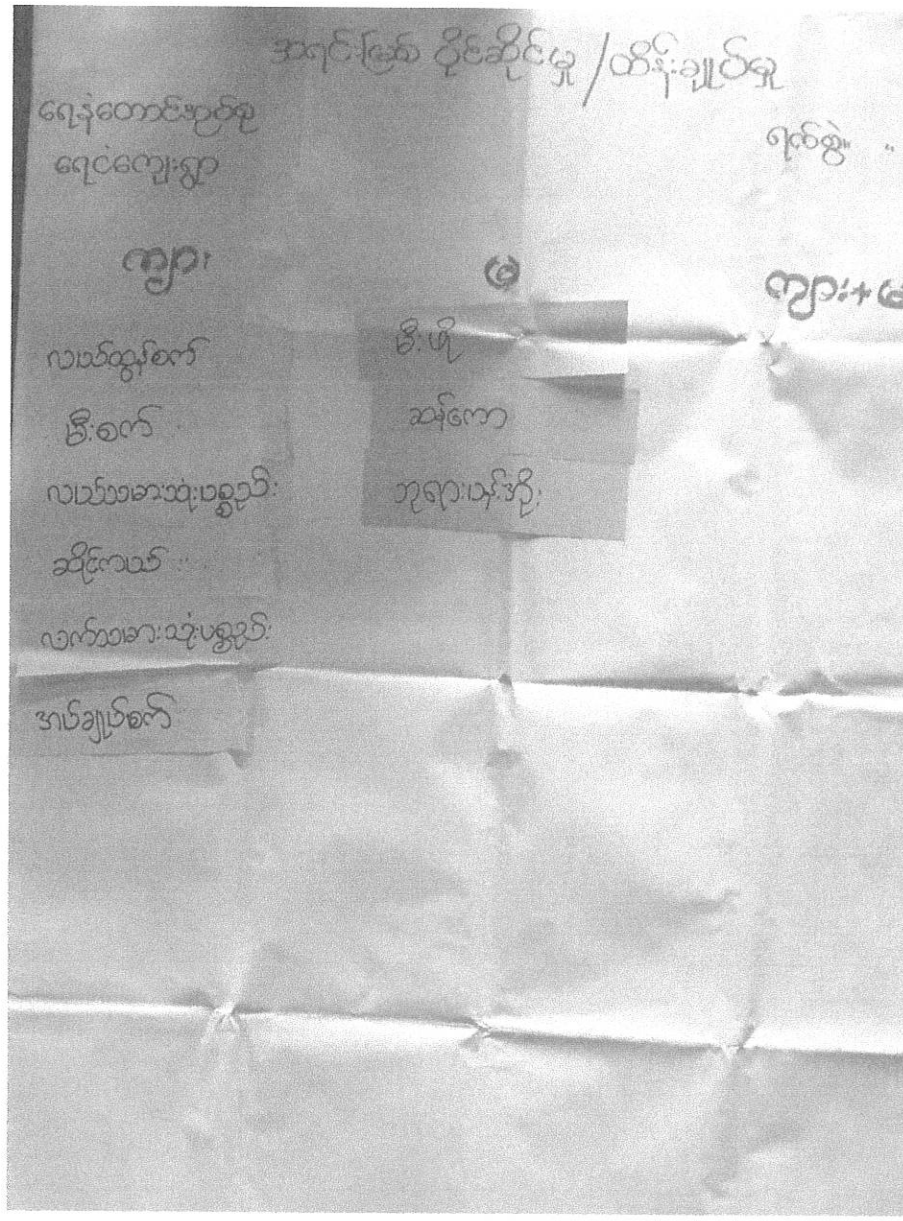 အရင်းမြစ် ပိုင်ဆိုင်မှု / ထိန်းချုပ်မှု
ရေနံတောင်အုပ်စု
ရေငံကျေးရွာ
ရက်စွဲ။ ။
ကျား
မ
ကျား+မ
လယ်ထွန်စက်
မီးစက်
လယ်သမားသုံးပစ္စည်း
ဆိုင်ကယ်
လက်သမားသုံးပစ္စည်း
အပ်ချုပ်စက်
မီးဖို
ဆန်ကော
ဘုရားပန်းအိုး